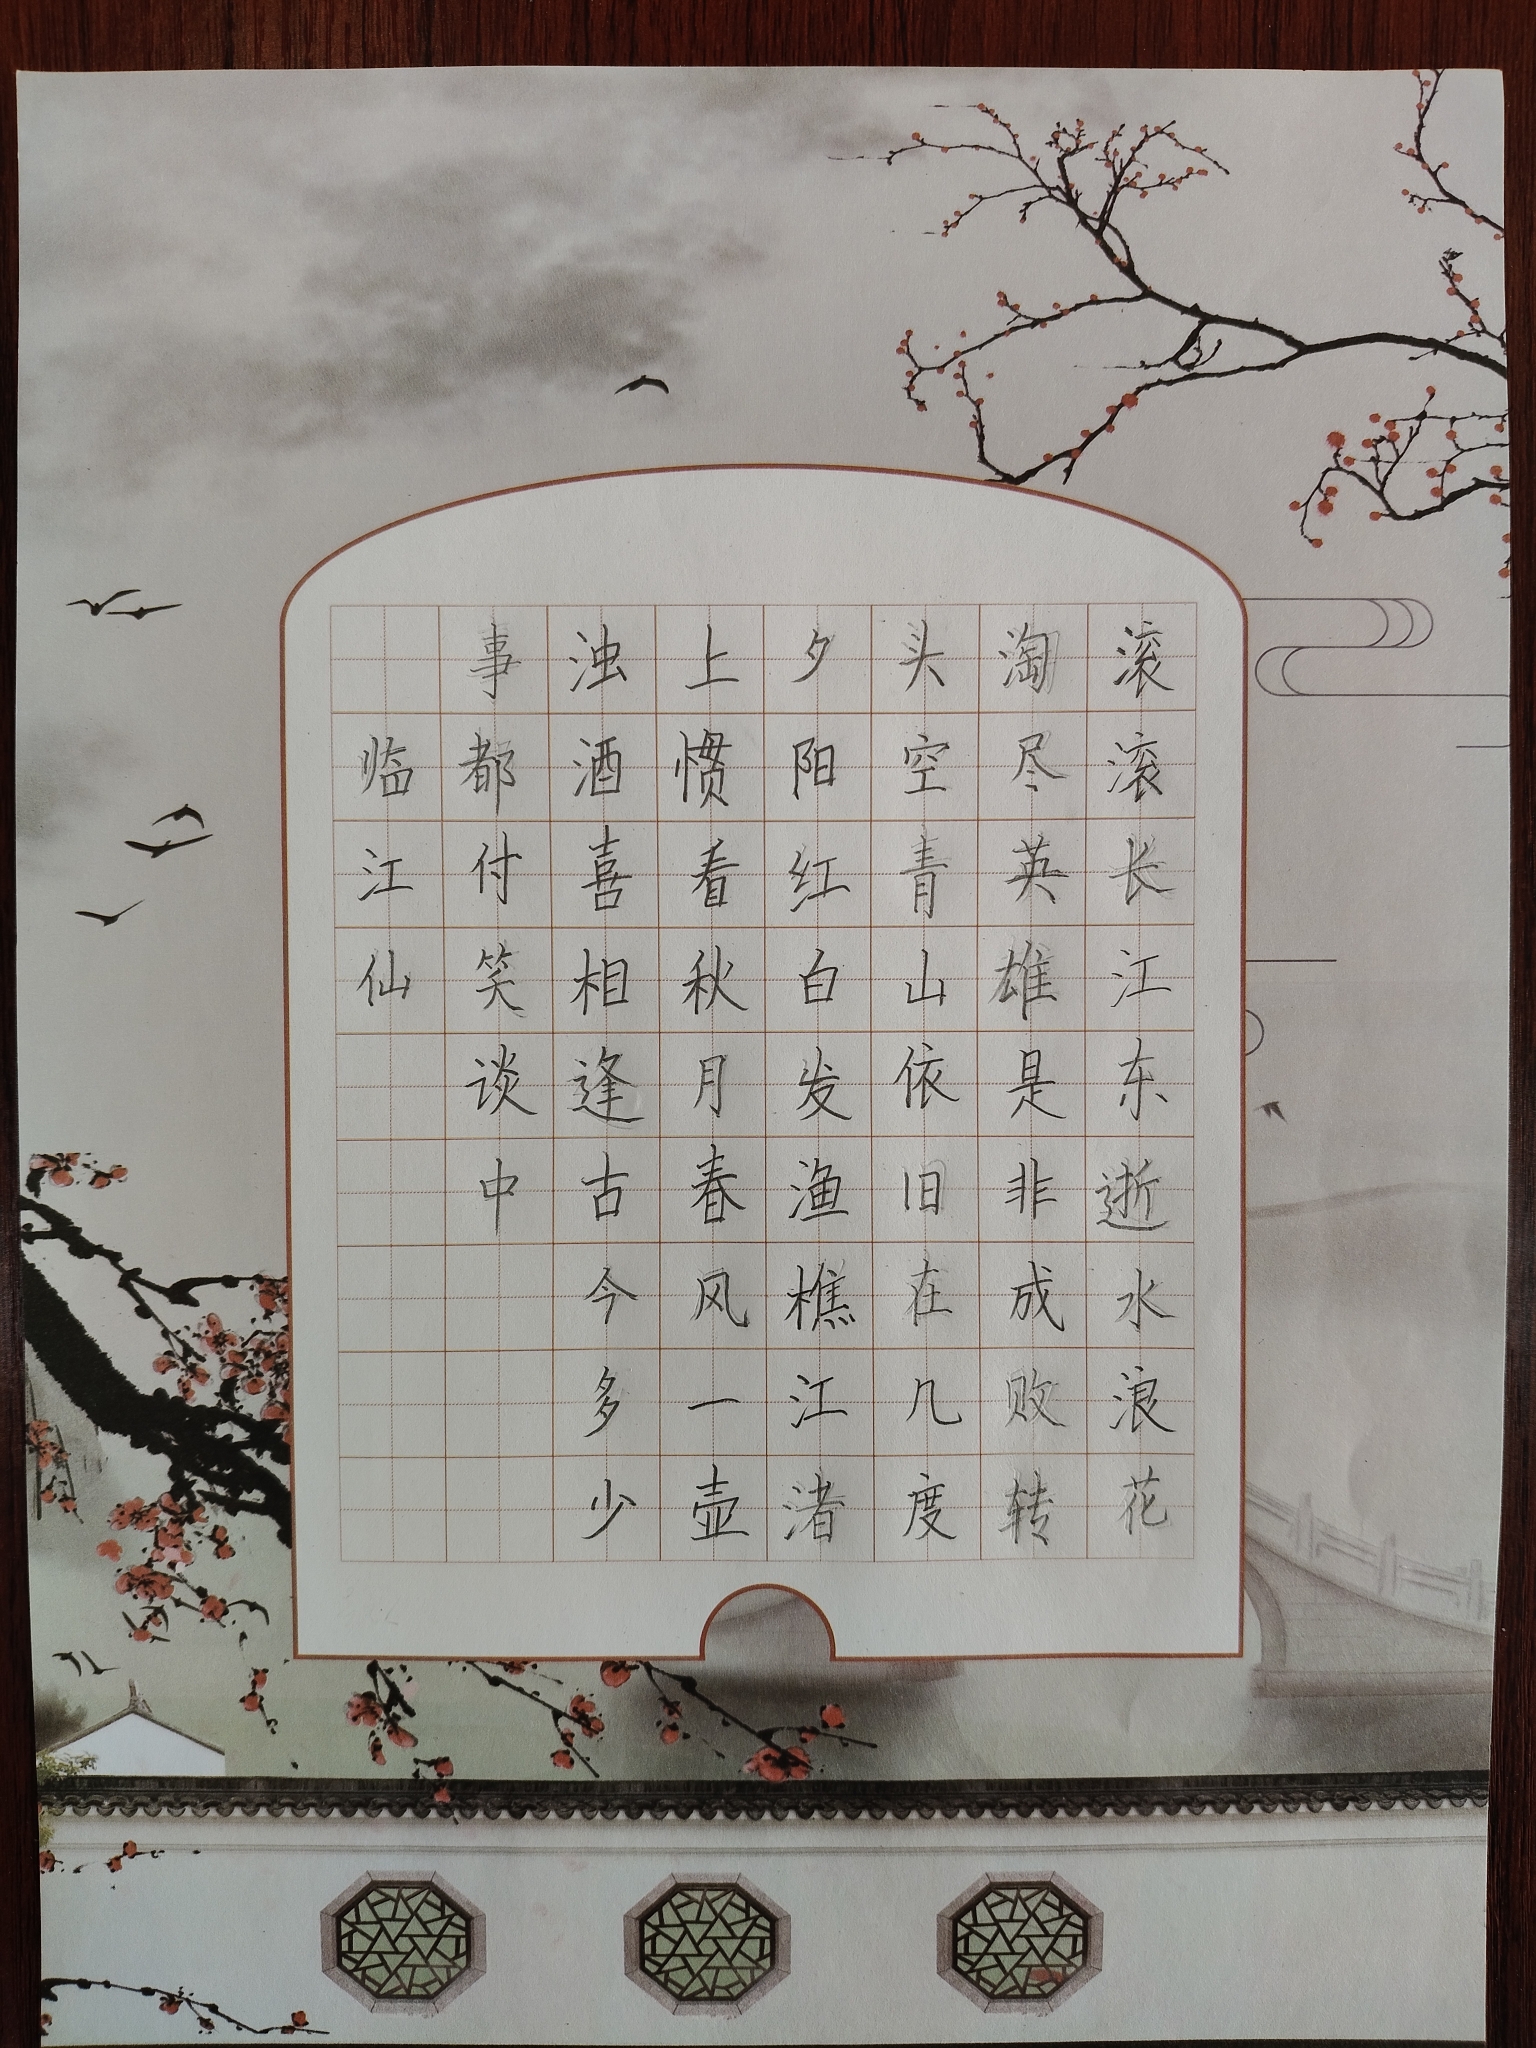 滚滚长江东逝水浪花
淘尽英雄是非成败转
头空青山依旧在几度
夕阳红白发渔樵江渚
上惯看秋月春风一壶
浊酒喜相逢古今多少
事都付笑谈中
临江仙